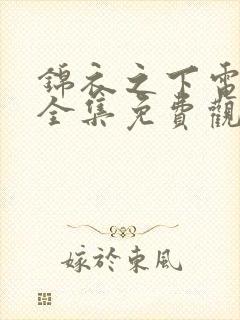 錦衣之下電
全集免費觀
嫁於東風